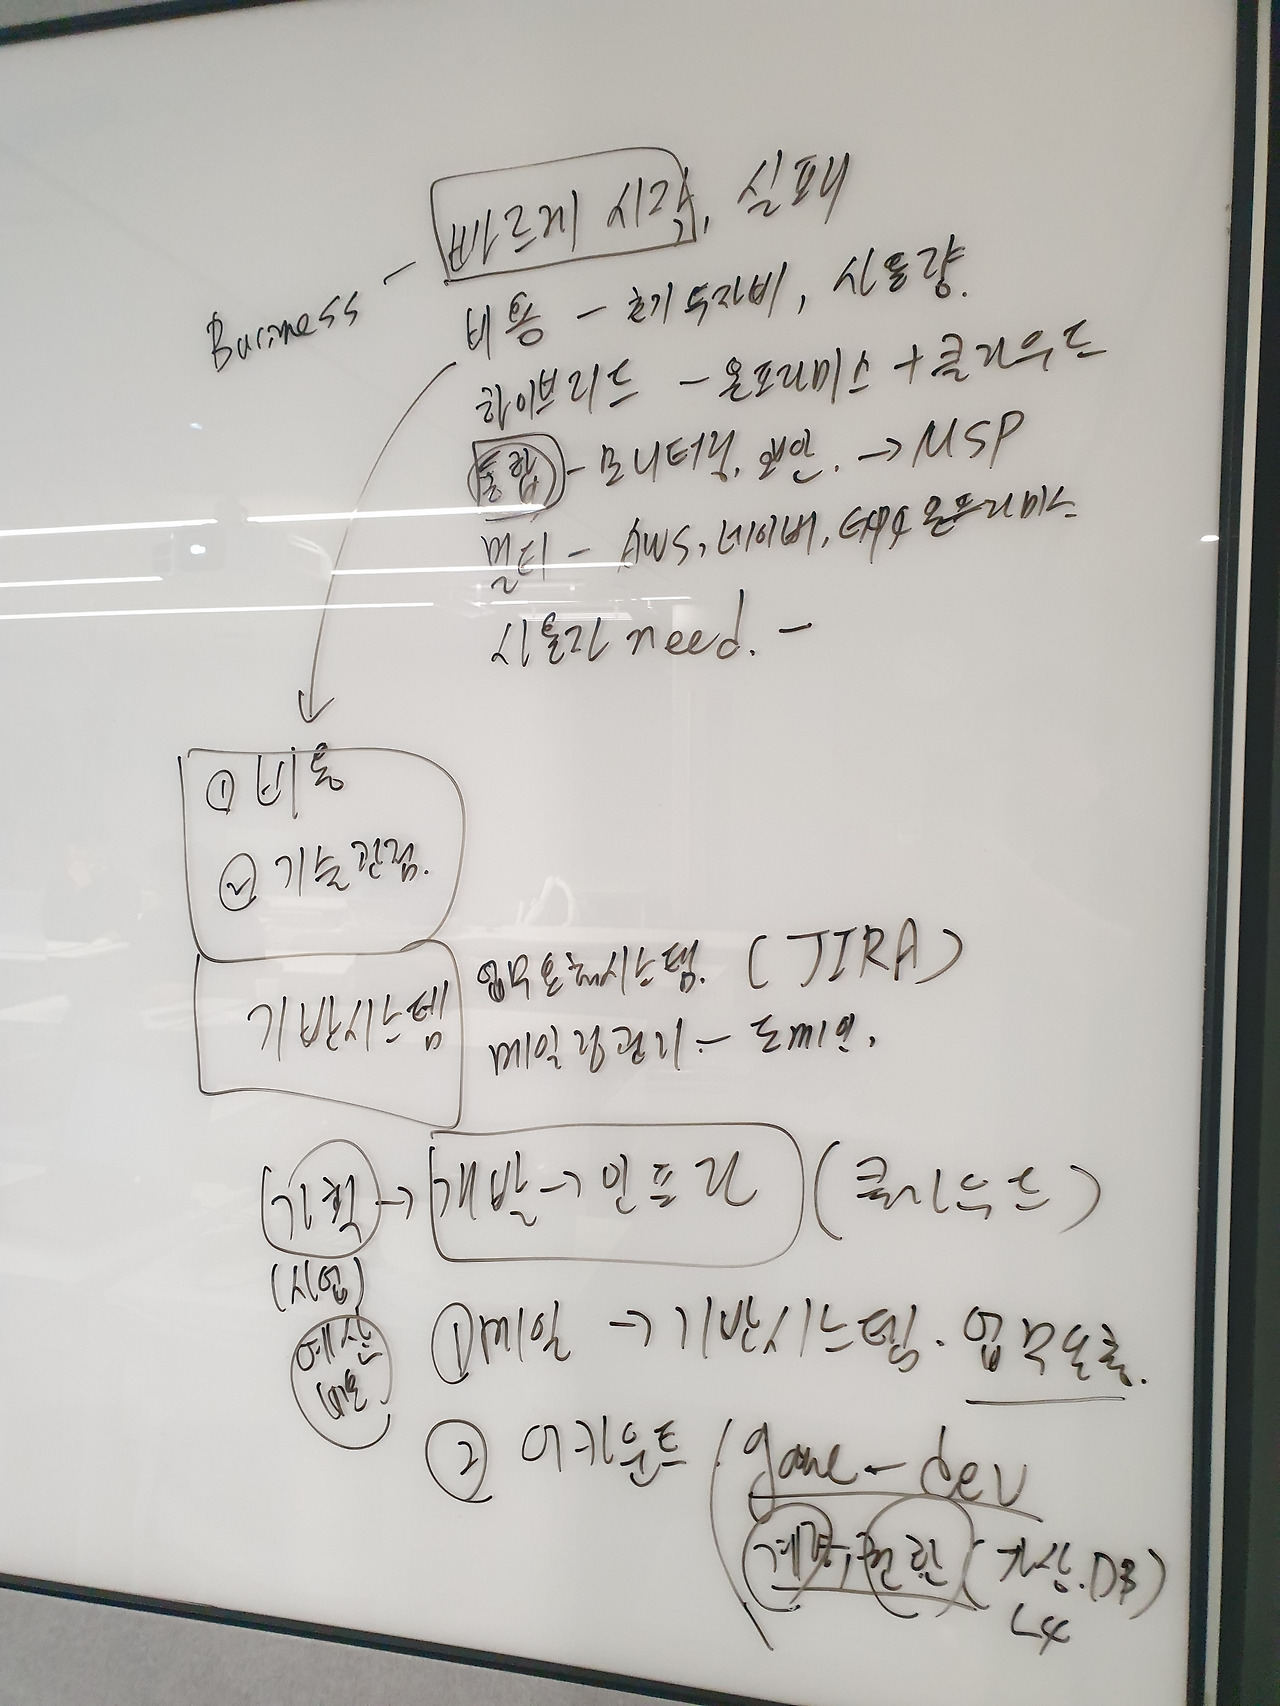 Business - 빠르게 시작, 실패
비용 - 초기 투자비, 사용량.
하이브리드 - 온프라미스 + 클라우드
통합 - 모니터링, 보안. → MSP
멀티 - AWS, 네이버, 온프라미스
사용자 need. -
① 비용
② 기술관점.
기반시스템
업무요청시스템. (JIRA)
메일링관리 - 도메인.
기획 → 개발 → 인프라 (클라우드)
(사업)
예산
비용
① 메일 → 기반시스템. 업무요청.
② 어카운트 game - dev
계정, 권한 (가상.DB)
L4